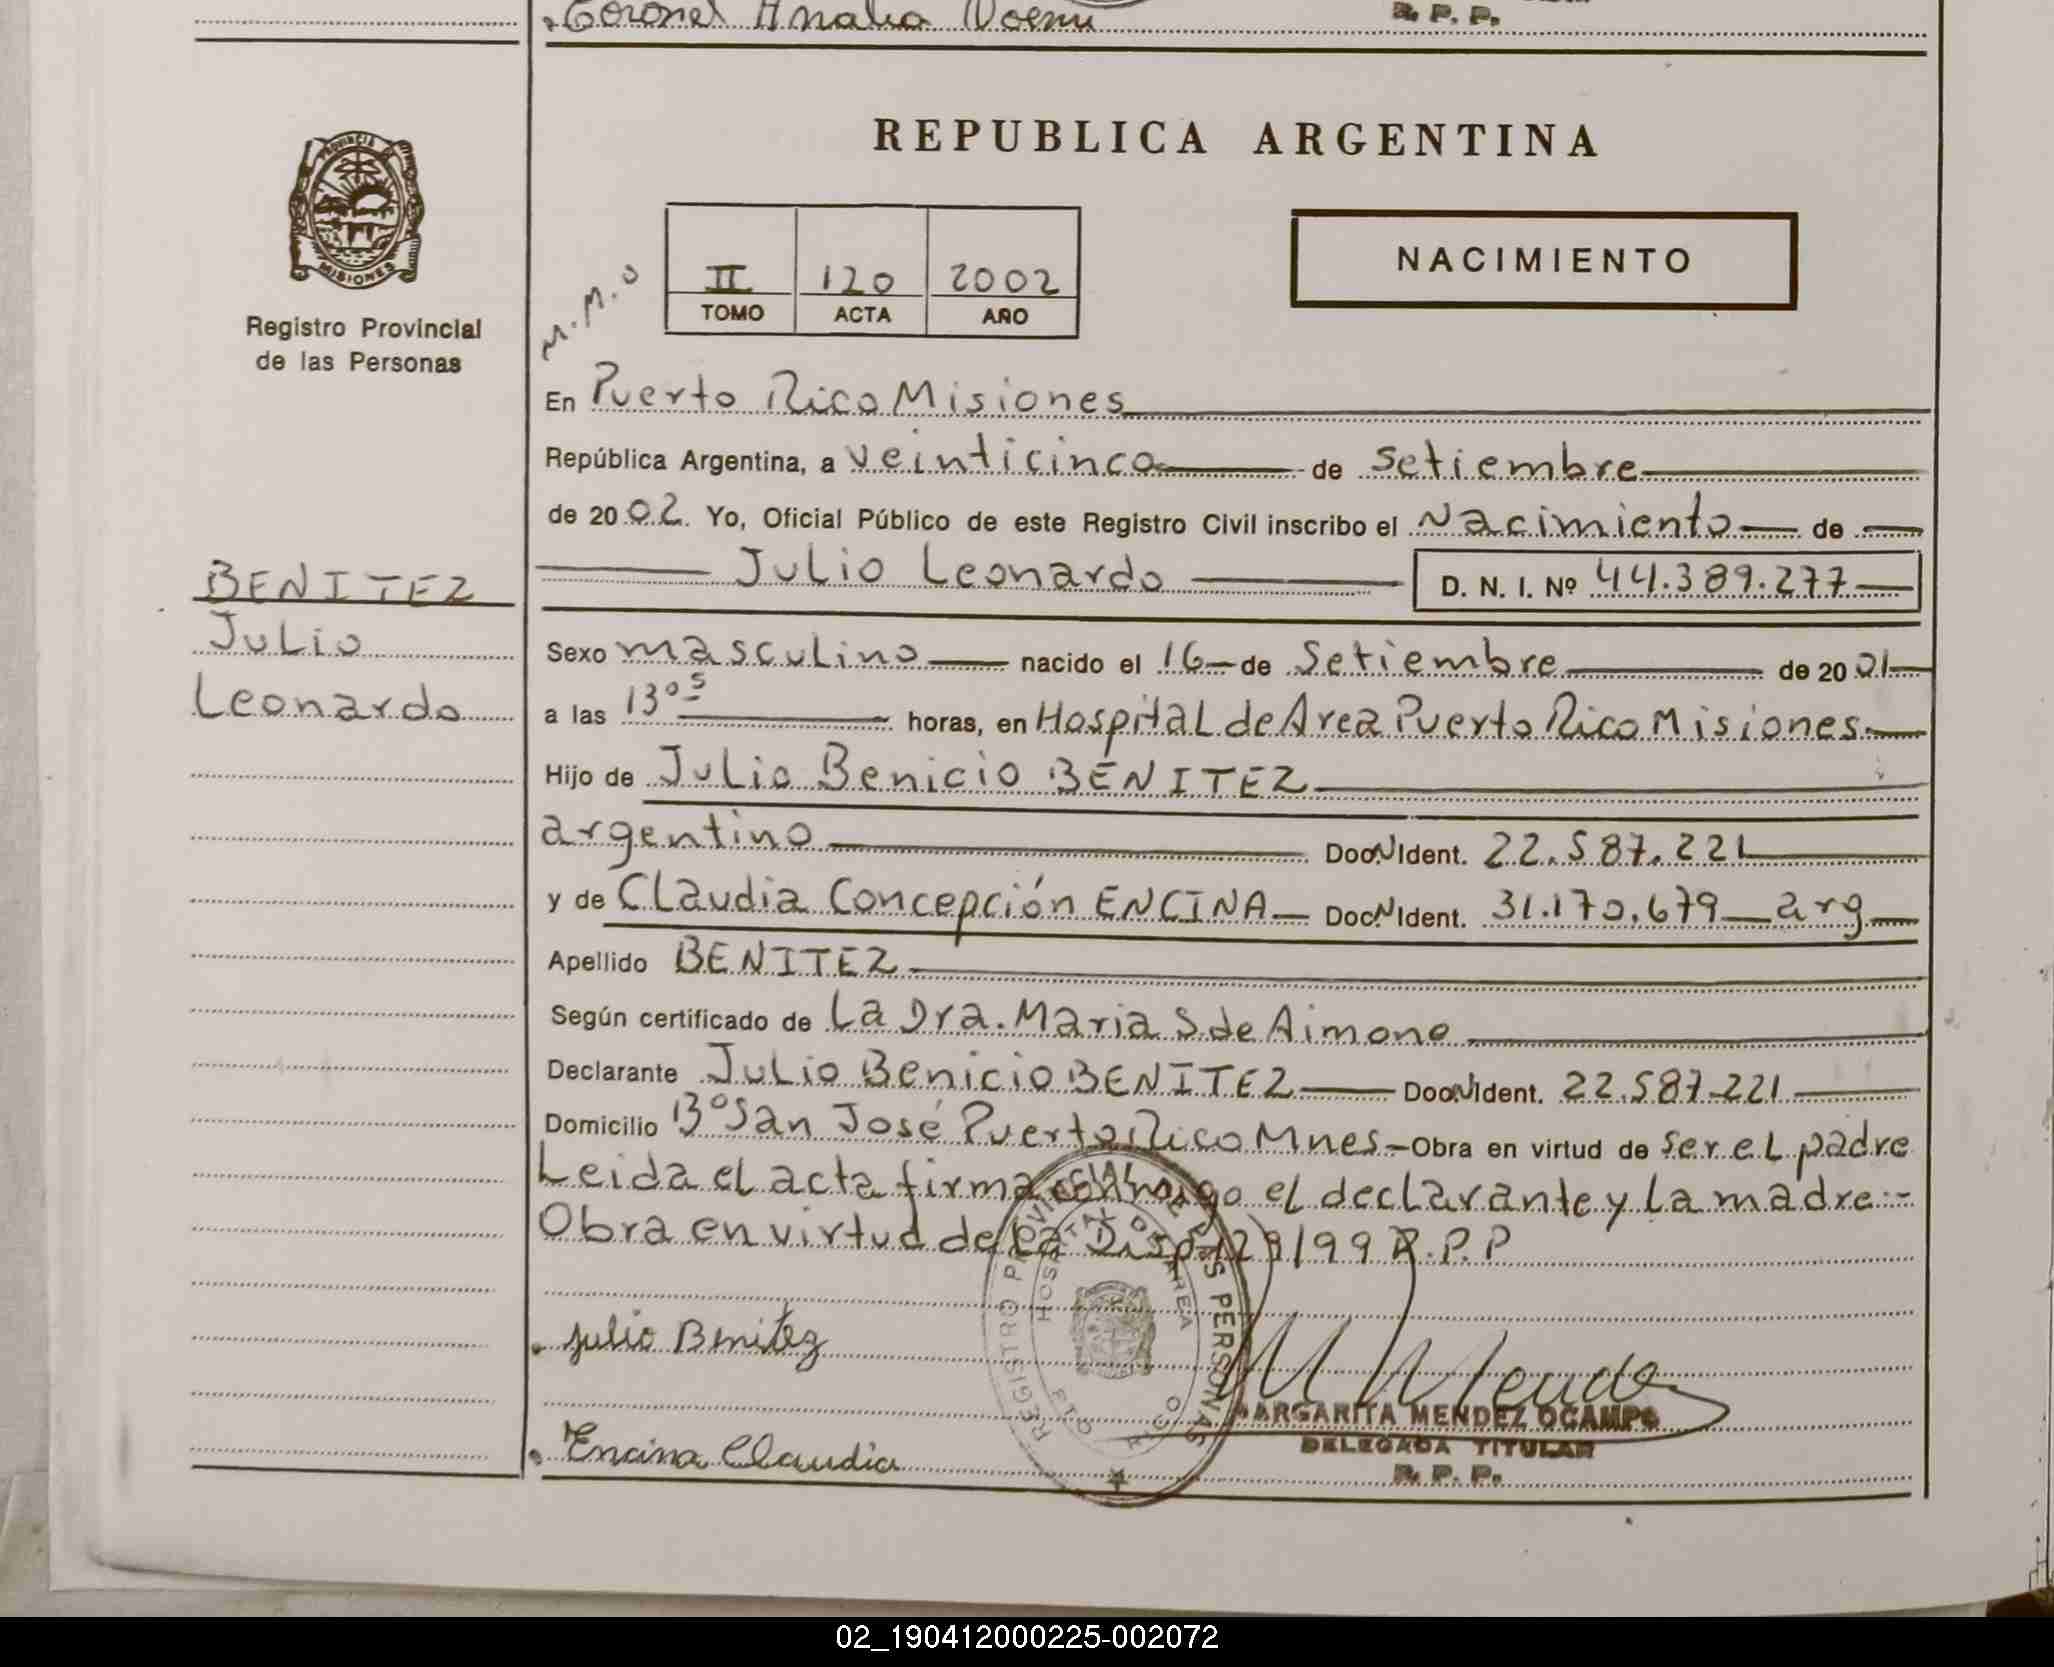 Coronel Analia Noemi
R. P. P.
PROVINCIA DE
MISIONES
Registro Provincial
de las Personas
REPUBLICA ARGENTINA
NACIMIENTO
M.M.O
II 120 2002
TOMO ACTA AÑO
En Puerto Rico Misiones
República Argentina, a veinticinco de setiembre
de 2002. Yo, Oficial Público de este Registro Civil inscribo el Nacimiento de
Julio Leonardo D. N. I. Nº 44.389.277
BENITEZ
Julio
Leonardo
Sexo masculino nacido el 16 de Setiembre de 2001
a las 13⁰⁵ horas, en Hospital de Area Puerto Rico Misiones
Hijo de Julio Benicio BENITEZ
argentino Doc.N.Ident. 22.587.221
y de Claudia Concepción ENCINA Doc.N.Ident. 31.170.679 arg
Apellido BENITEZ
Según certificado de La Dra. Maria S. de Aimone
Declarante Julio Benicio BENITEZ Doc.N.Ident. 22.587.221
Domicilio Bº San José Puerto Rico Mnes Obra en virtud de ser el padre
Leida el acta firma conmigo el declarante y la madre.-
Obra en virtud de la Disp. 129/99 R.P.P
Julio Benitez
Encina Claudia
REGISTRO PROVINCIAL DE LAS PERSONAS
HOSPITAL DE AREA
PTO RICO
MARGARITA MENDEZ OCAMPO
DELEGADA TITULAR
R. P. P.
02_190412000225-002072